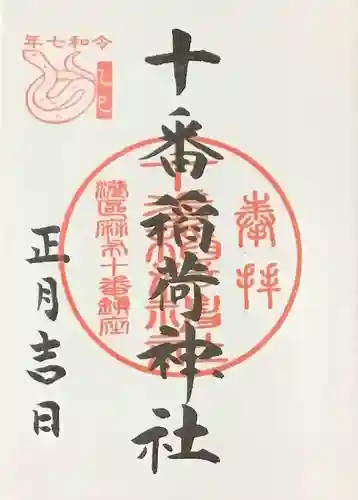 令和七年
乙巳
奉拝
十番稲荷神社
十番稲荷神社
港区麻布十番鎮座
正月吉日